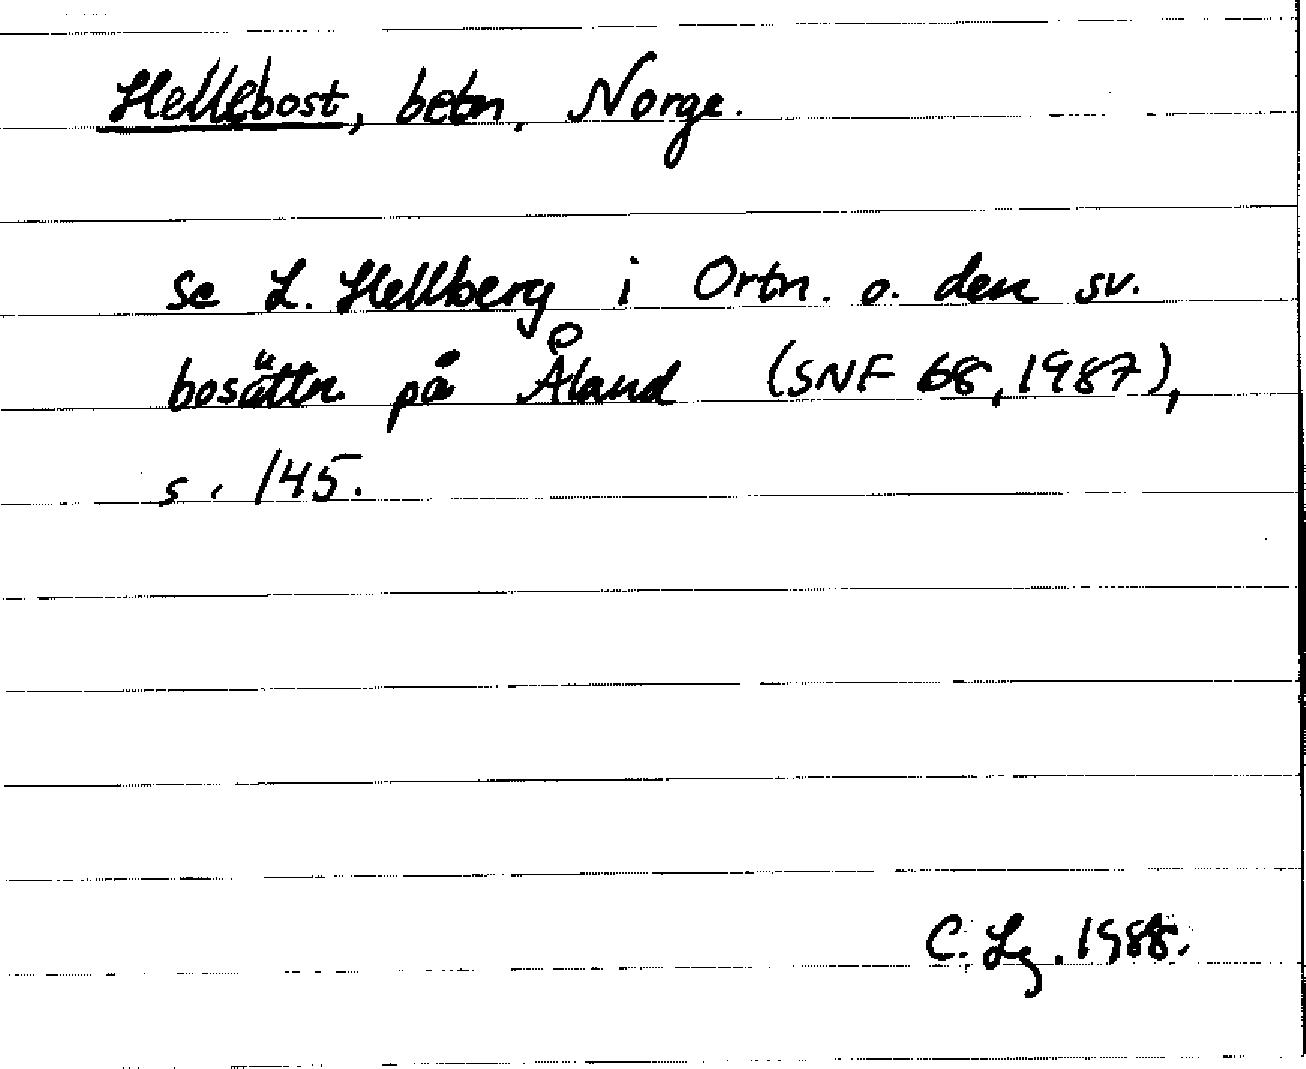 Hellebost, betn. Norge.
se L. Hellberg i Ortn. o. den sv.
bosättn. på Åland (SNF 68, 1987),
s. 145.
C. Lg. 1988.